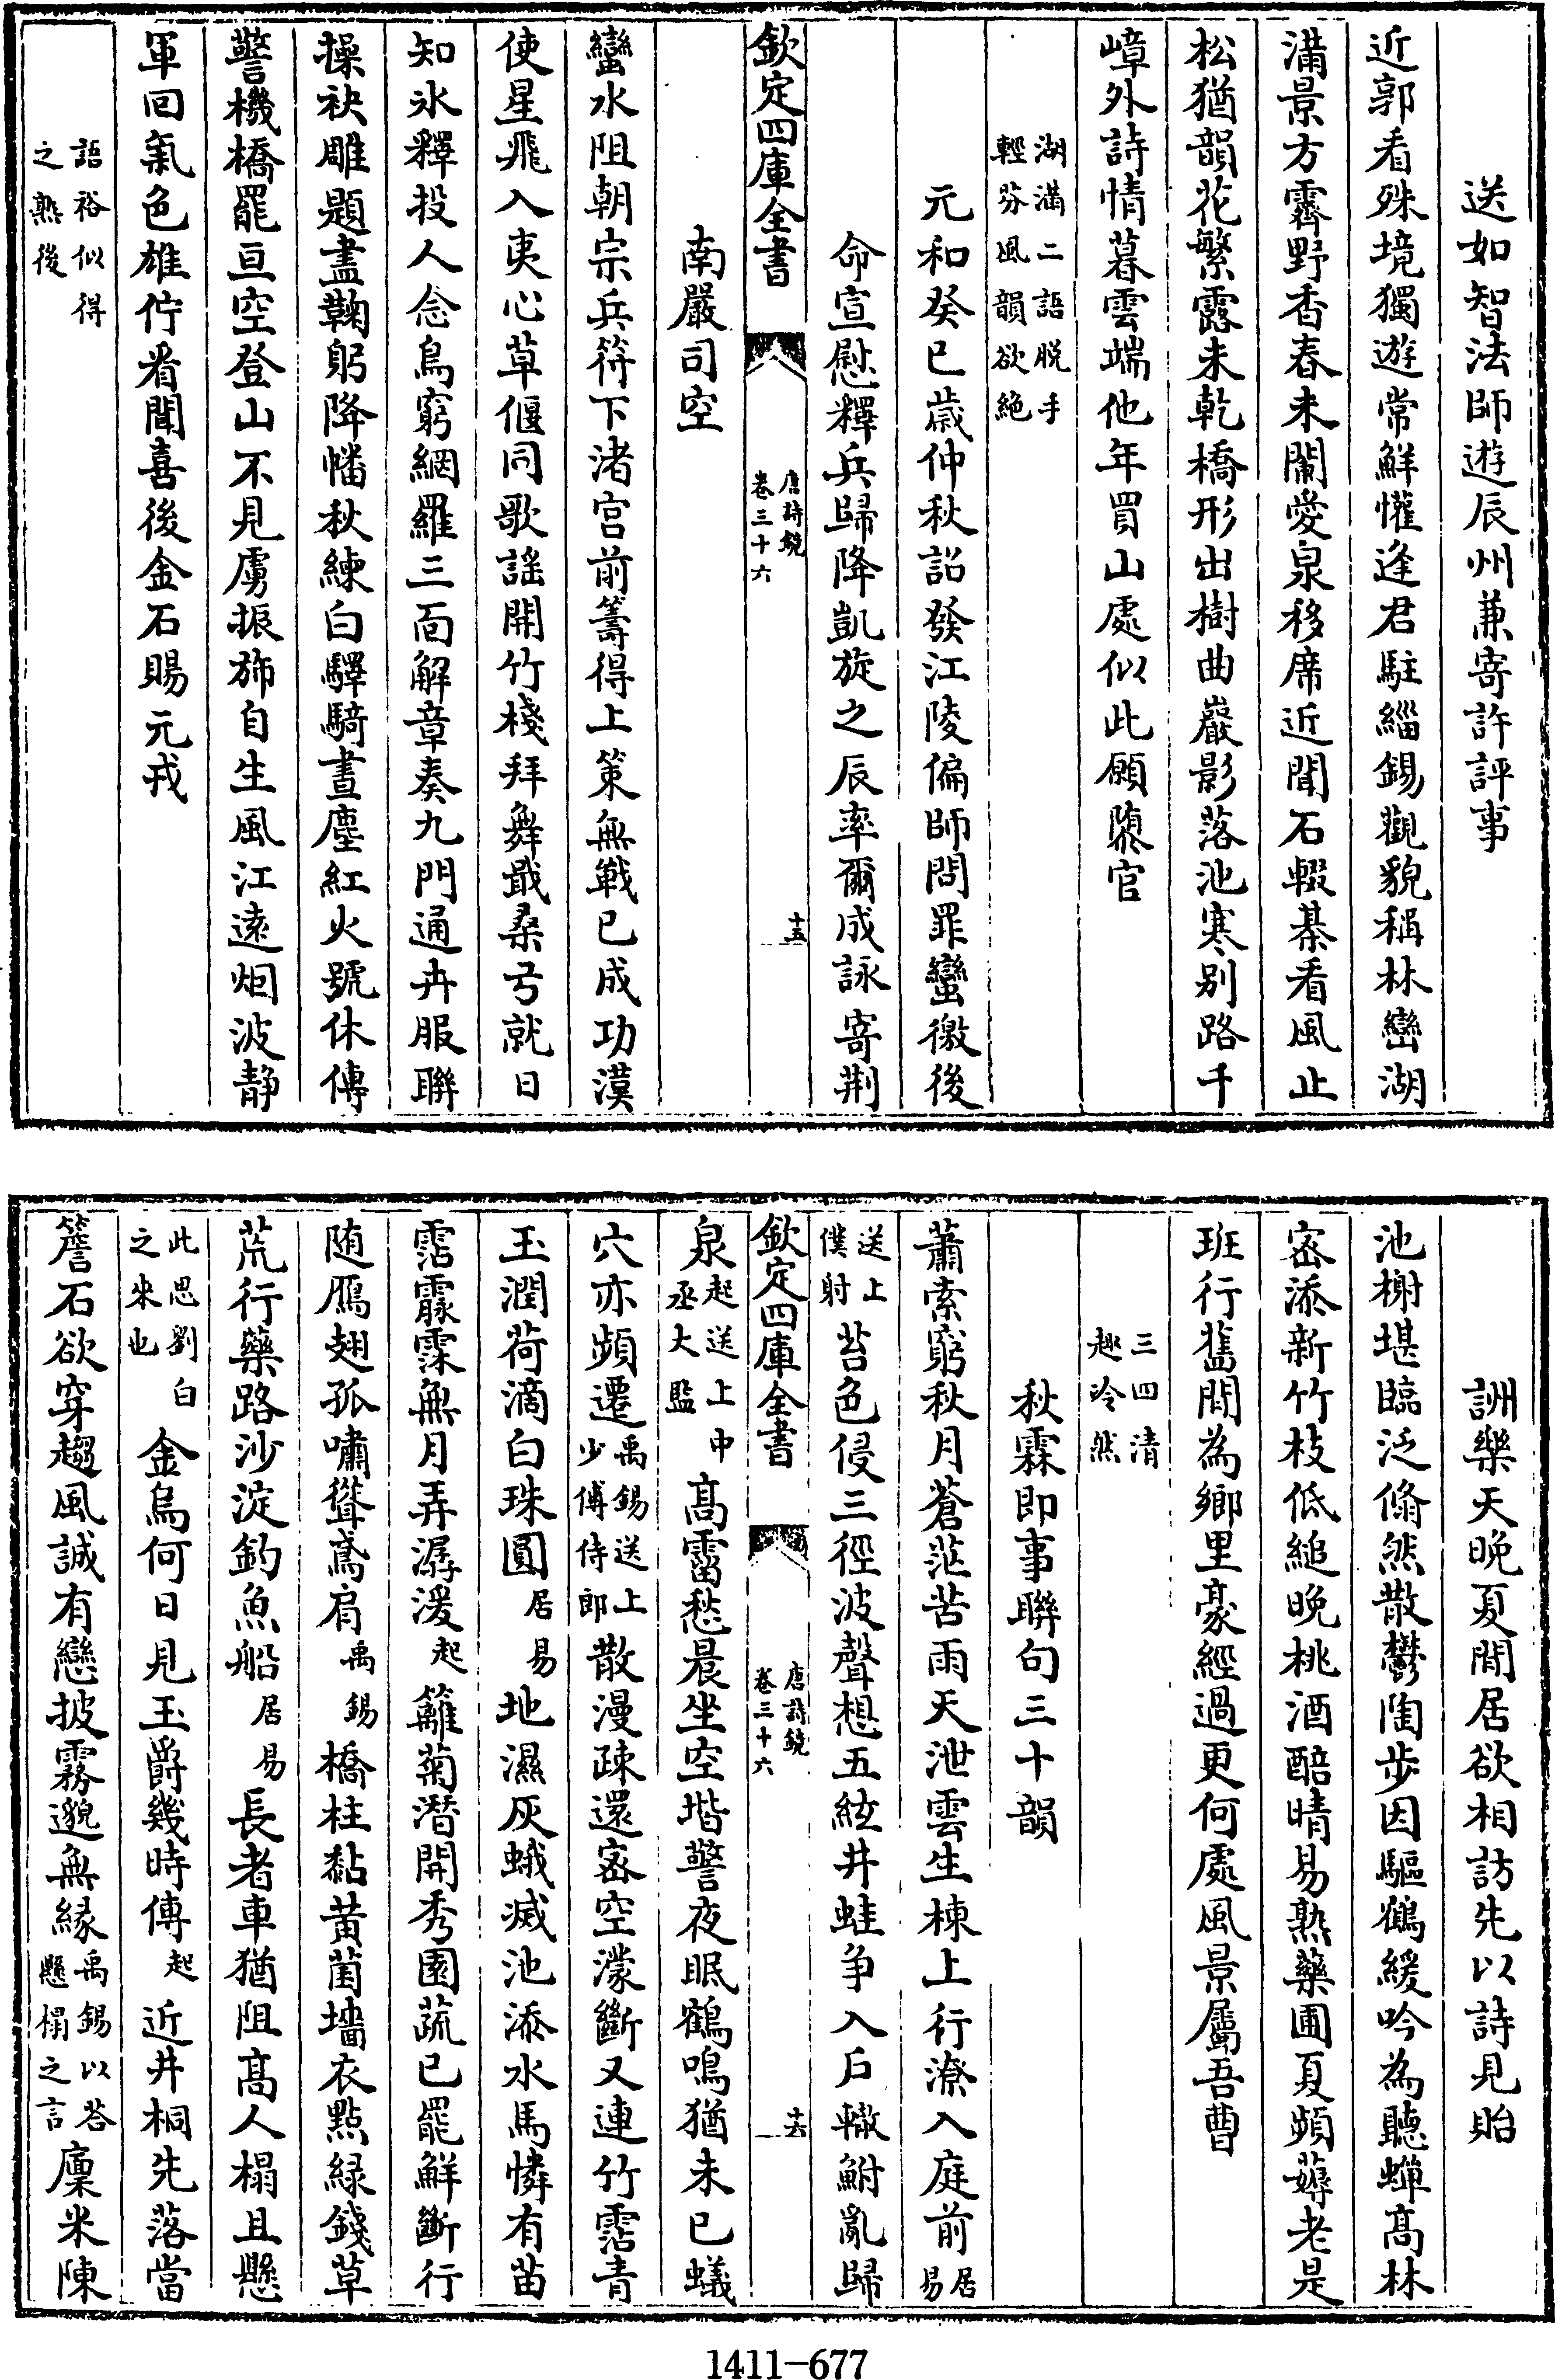 送如智法師遊辰州兼寄許評事
近郭看殊境獨遊常鮮懽逢君駐緇錫觀貌稱林巒湖
滿景方霽野香春未闌愛泉移席近聞石輟棊看風止
松猶韻花繁露未乾橋形出樹曲巖影落池寒别路千
嶂外詩情暮雲端他年買山處似此願隳官
湖滿二語脱手
輕芬風韻欲絶
元和癸巳歲仲秋詔發江陵偏師問罪蠻徼後
命宣慰釋兵歸降凱旋之辰率爾成詠寄荆
欽定四庫全書
唐詩鏡
卷三十六
十五
南嚴司空
蠻水阻朝宗兵符下渚宫前籌得上策無戰已成功漢
使星飛入夷心草偃同歌謡開竹棧拜舞戢桑弓就日
知氷釋投人念鳥窮網羅三面解章奏九門通卉服聯
操袂雕題盡鞠躬降幡秋練白驛騎晝塵紅火號休傳
警機橋罷亘空登山不見虜振旆自生風江遠烟波静
軍回氣色雄佇看聞喜後金石賜元戎
語裕似得
之熟後
詶樂天晚夏閒居欲相訪先以詩見貽
池榭堪臨泛翛然散鬱陶步因驅鶴緩吟為聽蟬髙林
密添新竹枝低縋晚桃酒醅晴易熟藥圃夏頻薅老是
班行舊閒為鄉里豪經過更何處風景屬吾曹
三四清
趣泠然
秋霖即事聯句三十韻
蕭索窮秋月蒼茫苦雨天泄雲生棟上行潦入庭前居易
送上僕射苔色侵三徑波聲想五絃井蛙争入户轍鮒亂歸
欽定四庫全書
唐詩鏡
卷三十六
十六
泉起送上中丞大監髙霤愁晨坐空堦警夜眠鶴鳴猶未已蟻
穴亦頻遷禹錫送上少傅侍郎散漫疎還密空濛斷又連竹霑青
玉潤荷滴白珠圓居易地濕灰蛾滅池添水馬憐有苗
霑霡霂無月弄潺湲起籬菊潛開秀園蔬已罷鮮斷行
隨鴈翅孤嘯聳鳶肩禹錫橋柱黏黄菌墻衣點緑錢草
荒行藥路沙淀釣魚船居易長者車猶阻髙人榻且懸
此思劉白之来也金烏何日見玉爵幾時傳起近井桐先落當
簷石欲穿趨風誠有戀披霧邈無緣禹錫以答懸榻之言廩米陳
1411-677